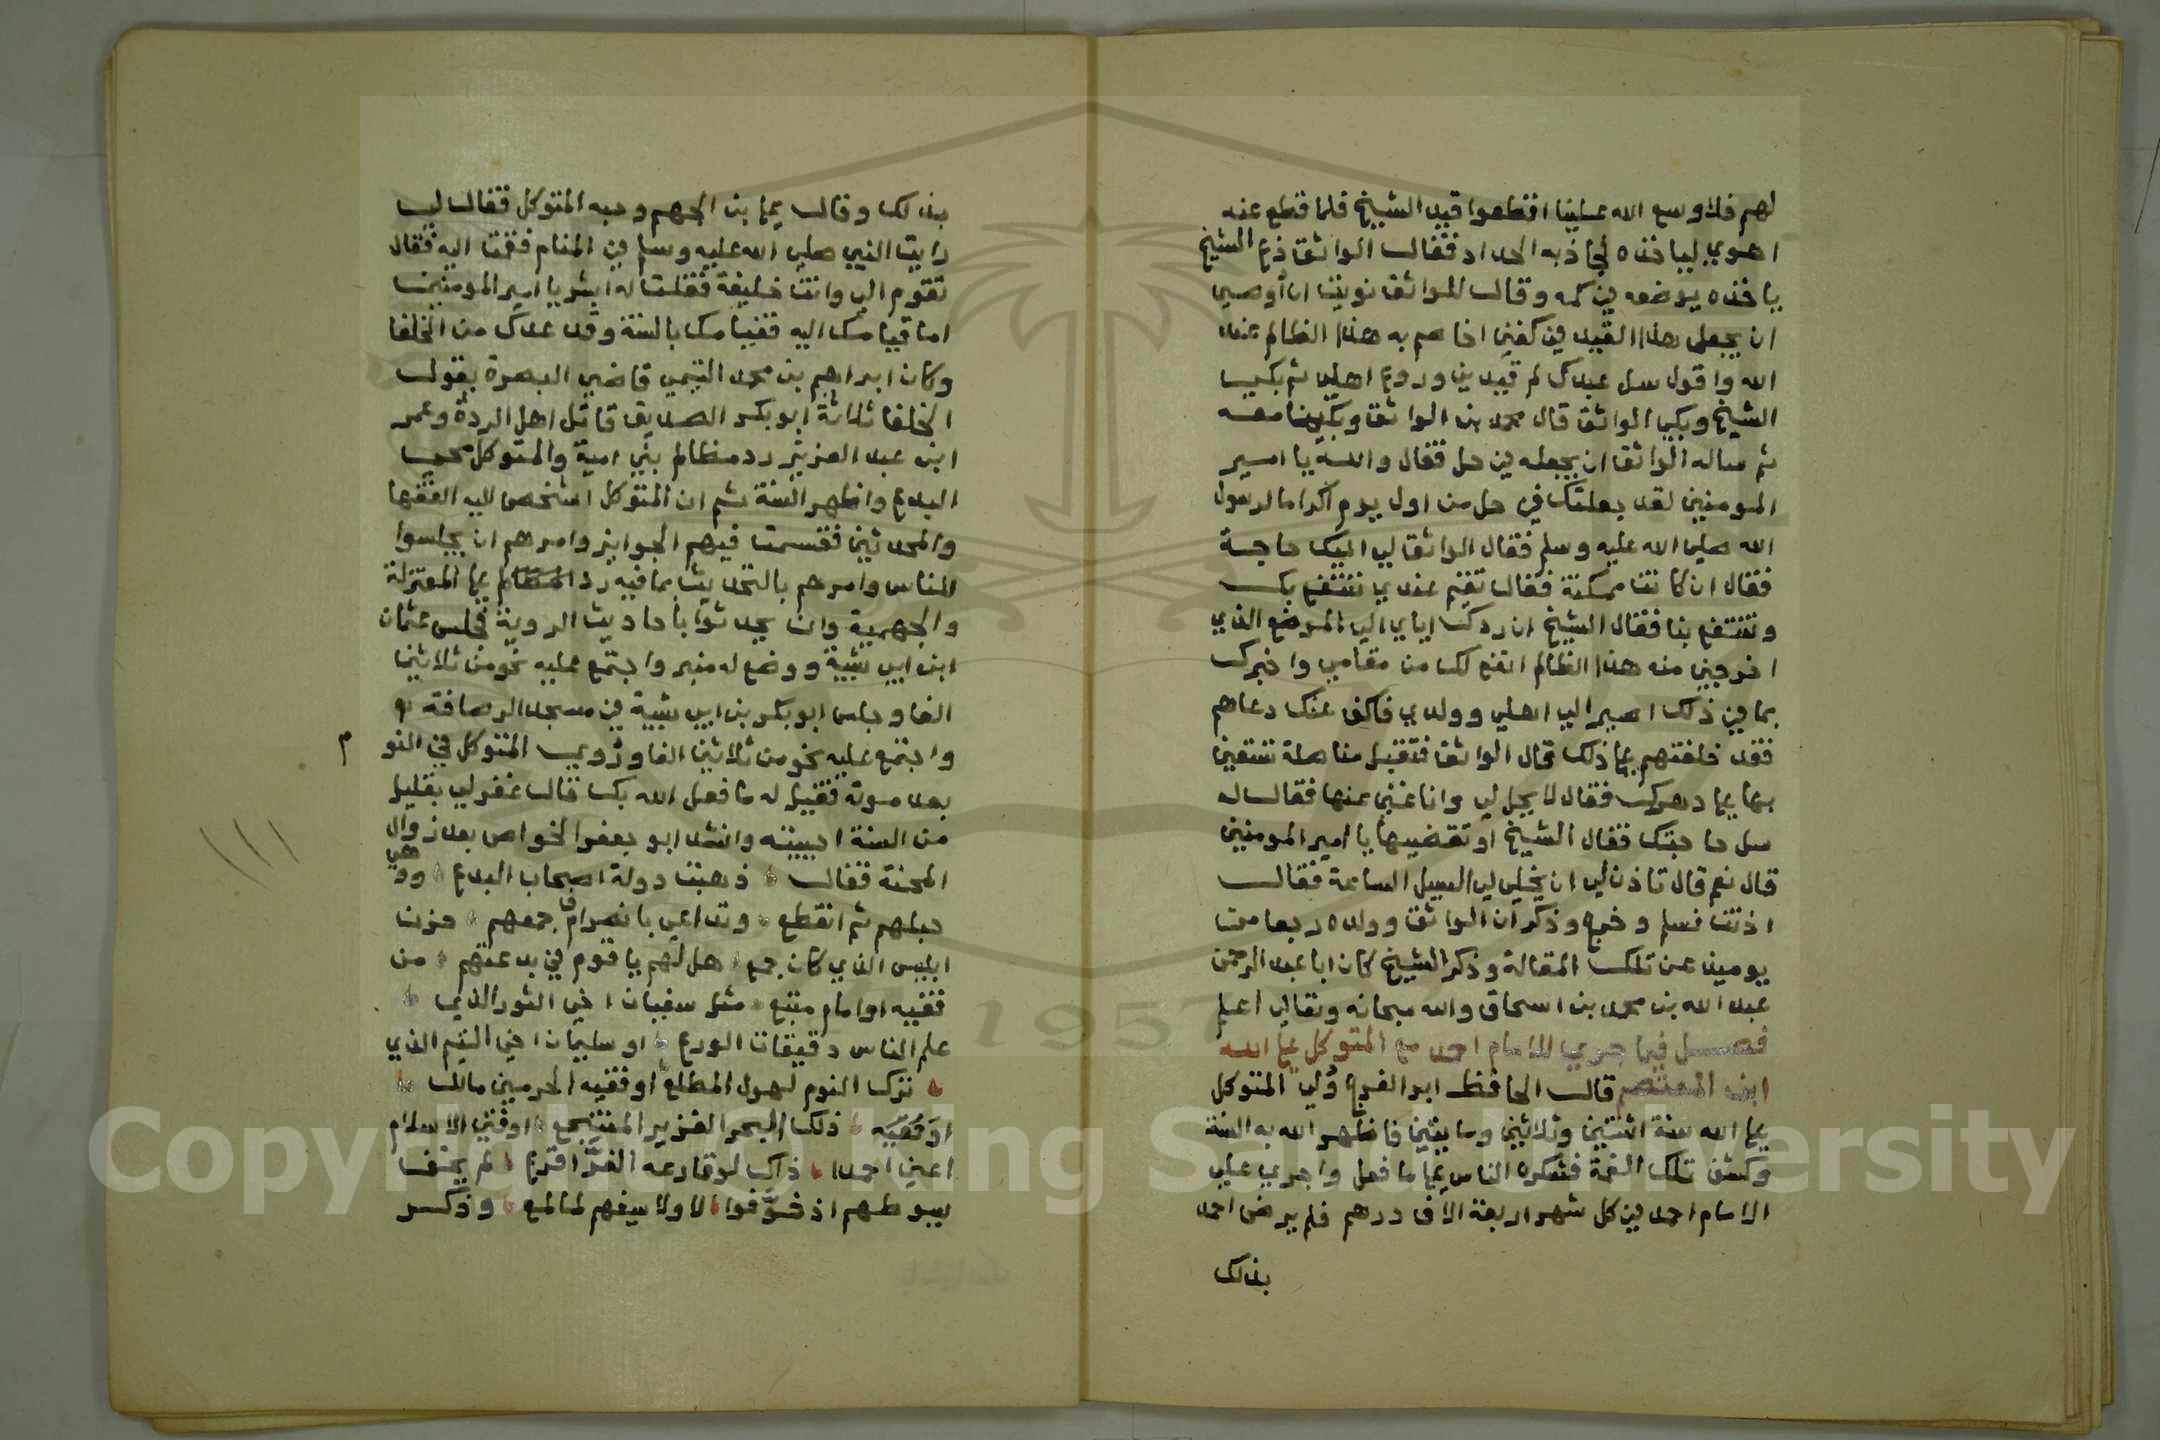 لهم فلا وسع الله علينا اقطعوا قيد الشيخ فلما قطع عنه
اهوي لياخذه فجاذبه الحداد فقال الواثق دع الشيخ
ياخذه يوضعه في كمه وقال للواثق نويت ان أوصي
ان يجعل هذا القيد في كفني اخاصم به هذا الظالم عند
الله واقول سل عبدك لم قيدني وروع اهلي ثم بكي
الشيخ وبكي الواثق قال محمد بن الواثق وبكينا معه
ثم ساله الواثق ان يجعله في حل فقال والله يا امير
المومنين لقد جعلتك في حل من اول يوم اكراما لرسول
الله صلي الله عليه وسلم فقال الواثق لي اليك حاجة
فقال ان كانت ممكنة فقال تقيم عندي ننتفع بك
وتنتفع بنا فقال الشيخ ان ردك اياي الي الموضع الذي
اخرجني منه هذا الظالم انفع لك من مقامي واخبرك
بما في ذلك اصير الي اهلي وولدي فاكف عنك دعاهم
فقد خلفتهم علي ذلك قال الواثق فتقبل منا صلة تستعين
بها علي دهرك فقال لا يحل لي وانا غني عنها فقال له
سل حاجتك فقال الشيخ او تقضيها يا امير المومنين
قال نعم قال تاذن لي ان يخلي لي السبيل الساعة فقال
اذنت فسلم وخرج وذكر ان الواثق وولده رجعا من
يوميذ عن تلك المقالة وذكر الشيخ كان ابا عبد الرحمن
عبد الله بن محمد بن اسحاق والله سبحانه وتعالي اعلم
فصل فيما جري للامام احمد مع المتوكل علي الله
ابن المعتصم قال الحافظ ابو الفرج وُلي المتوكل
علي الله سنة اثنتين وثلاثين ومايتين فاظهر الله به السنة
وكشف تلك الغمة فشكره الناس علي ما فعل واجري علي
الامام احمد في كل شهر اربعة الاف درهم فلم يرض احمد
بذلك
بذلك وقال علي بن الجهم وجه المتوكل فقال لي
رايت النبي صلي الله عليه وسلم في المنام فقمت اليه فقال
تقوم الي وانت خليفة فقلت له ابشر يا امير المومنين
اما قيامك اليه فقيامك بالسنة وقد عدك من الخلفا
وكان ابراهيم بن محمد التيمي قاضي البصرة يقول
الخلفا ثلاثة ابو بكر الصديق قاتل اهل الردة وعمر
ابن عبد العزيز رد مظالم بني امية والمتوكل محي
البدع واظهر السنة ثم ان المتوكل اشخص اليه الفقها
والمحدثين فقسمت فيهم الجوايز وامرهم ان يجلسوا
للناس وامرهم بالتحديث مما فيه رد المظالم علي المعتزلة
والجهمية وان يحدثوا بأحاديث الروية فجلس عثمان
ابن ابي شيبة ووضع له منبر واجتمع عليه نحو من ثلاثين
الفا وجلس ابو بكر بن ابي شيبة في مسجد الرصافة
واجتمع عليه نحو من ثلاثين الفا وروي المتوكل في النو
م
بعد موته فقيل له ما فعل الله بك قال غفر لي بقليل
من السنة احييته وانشد ابو جعفر الخواص بعد زوال
المحنة فقال ذهبت دولة اصحاب البدع ووهي
حبلهم ثم انقطع وتداعي بانصرام جمعهم حزب
ابليس الذي كان جمع هل لهم يا قوم في بدعتهم من
فقيه او امام متبع مثل سفيان اخي الثور الذي
علم الناس دقيقات الورع او سليمان اخي التيم الذي
ترك النوم لهول المطلع او فقيه الحرمين مالك
ذلك البحر الغزير المنتجع او فتي الاسلام
اعني احمدا ذاك لو قارعه القرا قرع لم يخف
سوطهم اذ خوَّفوا لا ولا سيفهم لما لمع وذكر